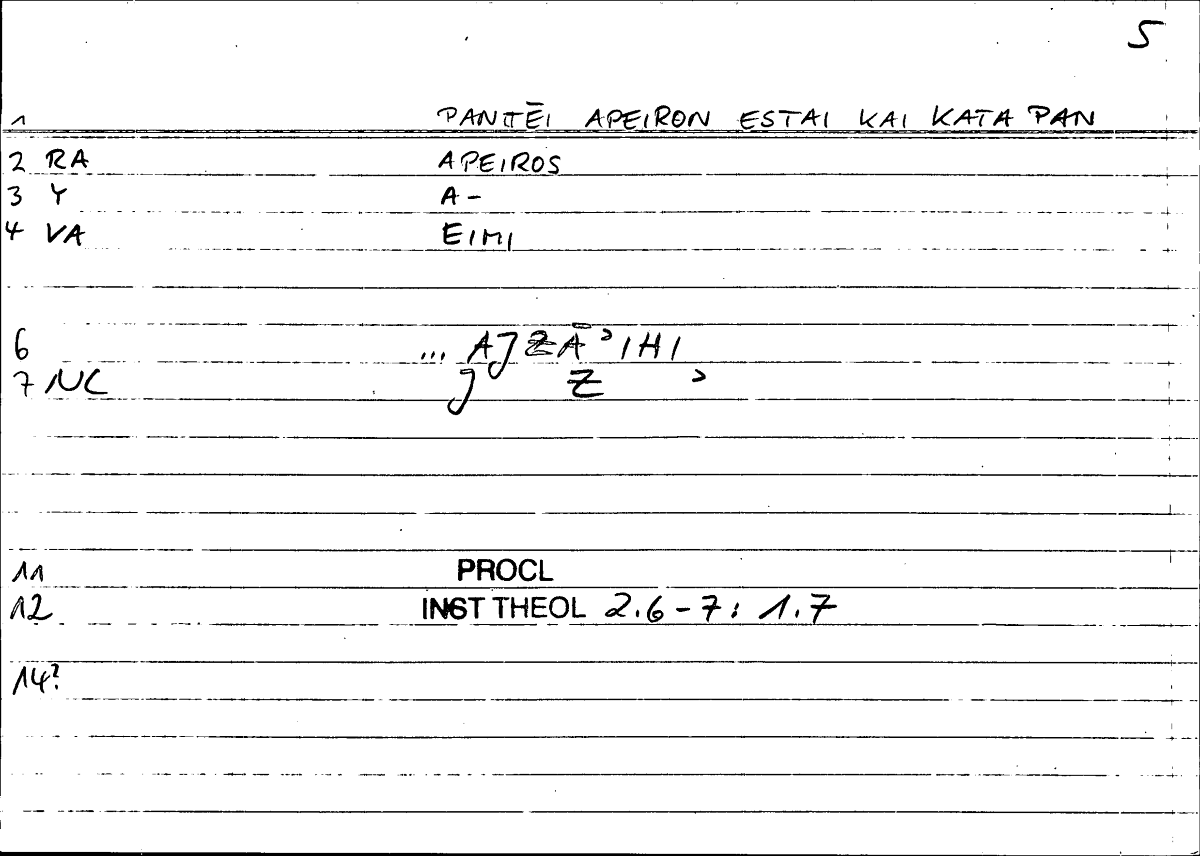 5
1 PANTĒI APEIRON ESTAI KAI KATA PAN
2 RA APEIROS
3 Y A-
4 VA EIMI
6 ... AJZĀʾIHI
7 NC J Z ʾ
11 PROCL
12 INST THEOL 2.6-7: 1.7
14?